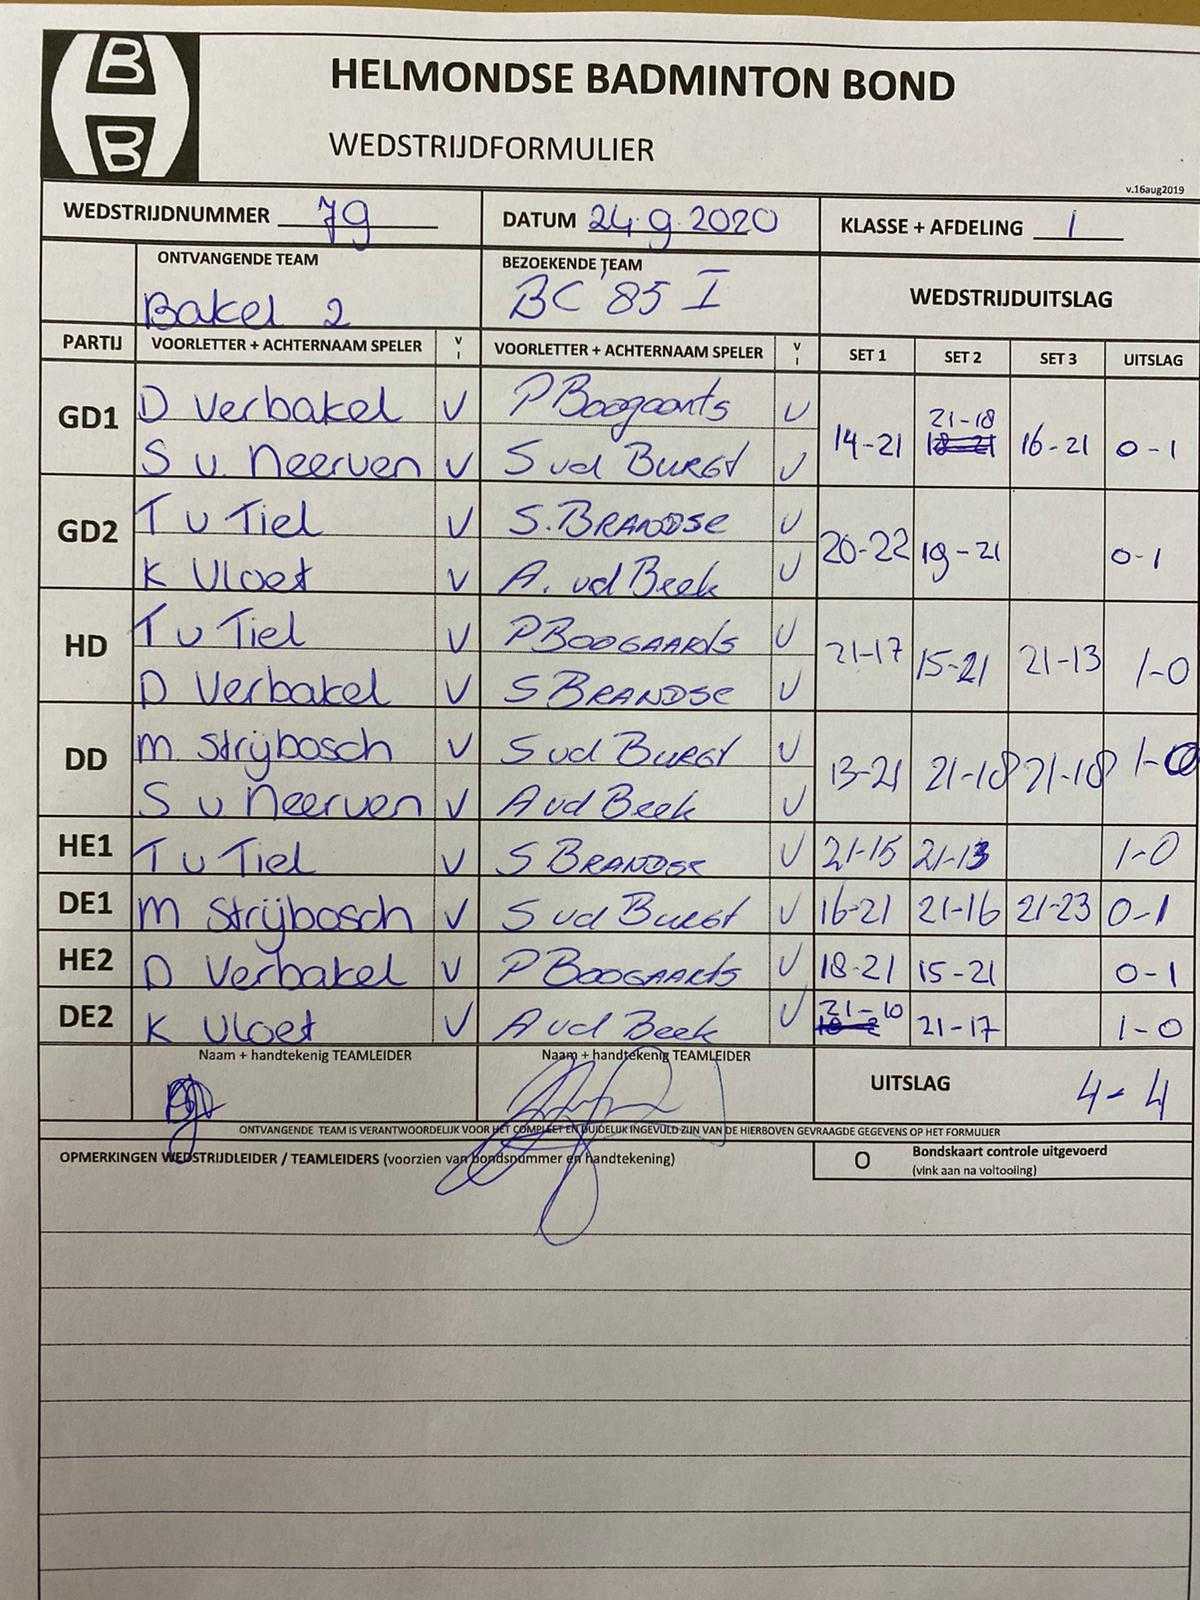 B
B
HELMONDSE BADMINTON BOND
WEDSTRIJDFORMULIER
v.16aug2019
WEDSTRIJDNUMMER 79 DATUM 24.9.2020 KLASSE + AFDELING 1
ONTVANGENDE TEAM BEZOEKENDE TEAM WEDSTRIJDUITSLAG
Bakel 2 BC '85 I
PARTIJ VOORLETTER + ACHTERNAAM SPELER V I VOORLETTER + ACHTERNAAM SPELER V I SET 1 SET 2 SET 3 UITSLAG
GD1 D Verbakel V P Boogaarts V 14-21 21-18 16-21 0-1
S v. Neerven V S vd Burgt V
GD2 T v Tiel V S. BRANDSE V 20-22 19-21 0-1
K Vloet V A. vd Beek V
HD T v Tiel V P BOOGAARTS V 21-17 15-21 21-13 1-0
D Verbakel V S BRANDSE V
DD M Strijbosch V S vd Burgt V 13-21 21-18 21-18 1-0
S v Neerven V A vd Beek V
HE1 T v Tiel V S BRANDSE V 21-15 21-13 1-0
DE1 M Strijbosch V S vd Burgt V 16-21 21-16 21-23 0-1
HE2 D Verbakel V P BOOGAARTS V 18-21 15-21 0-1
DE2 K Vloet V A vd Beek V 21-10 21-17 1-0
Naam + handtekenig TEAMLEIDER Naam + handtekenig TEAMLEIDER UITSLAG 4-4
ONTVANGENDE TEAM IS VERANTWOORDELIJK VOOR HET COMPLEET EN DUIDELIJK INGEVULD ZIJN VAN DE HIERBOVEN GEVRAAGDE GEGEVENS OP HET FORMULIER
OPMERKINGEN WEDSTRIJDLEIDER / TEAMLEIDERS (voorzien van bondsnummer en handtekening) O Bondskaart controle uitgevoerd
(vink aan na voltooiing)